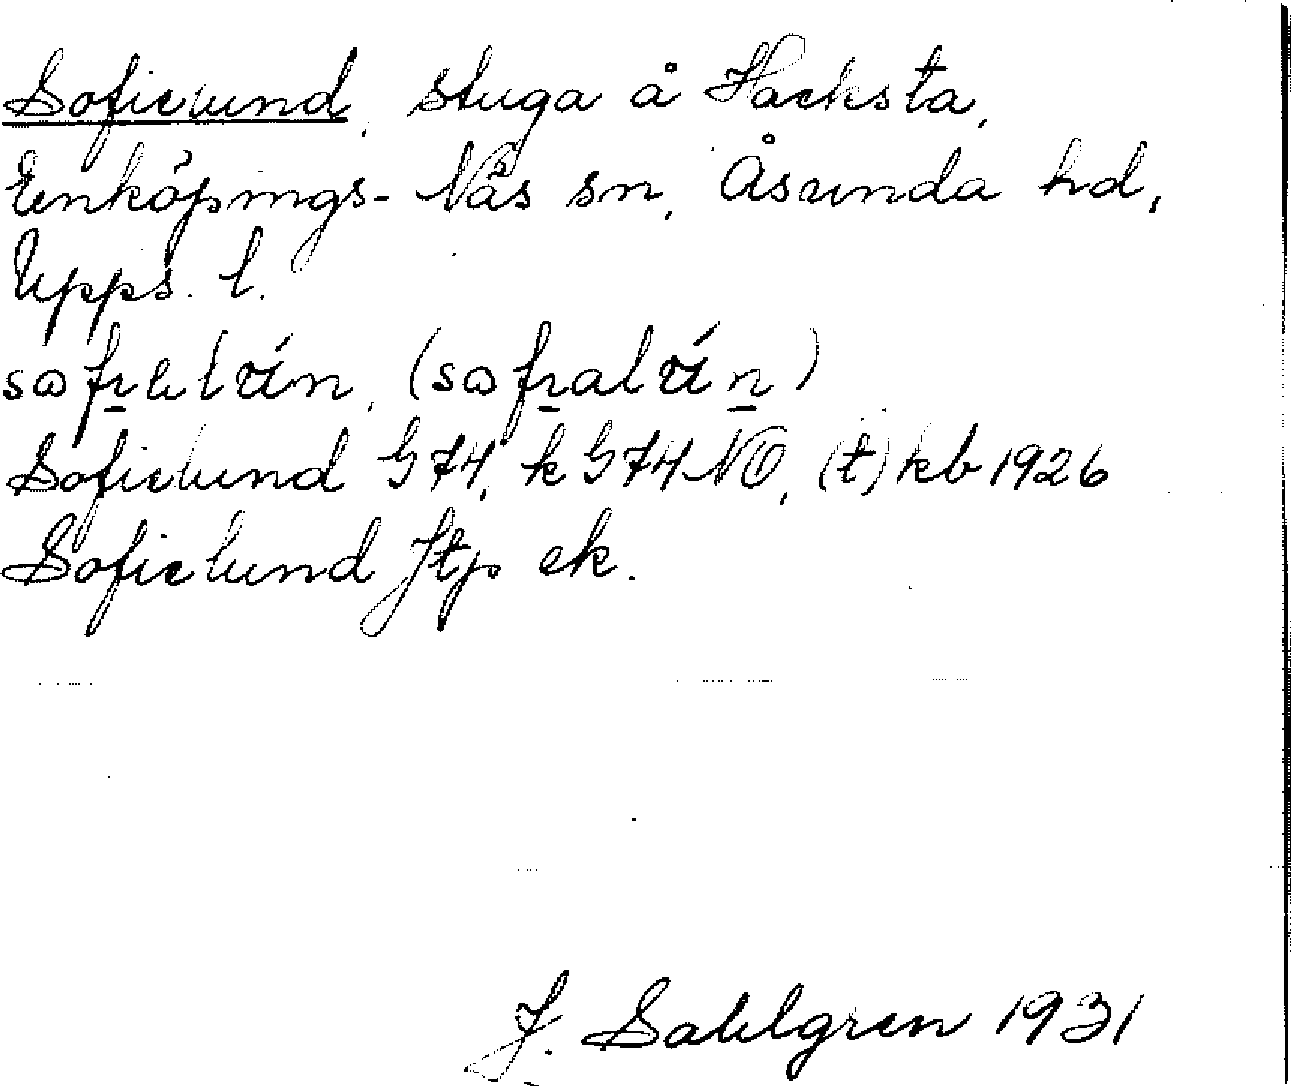 Sofielund, stuga å Hacksta,
Enköpings-Näs sn, Åsunda hd,
Upps. l.
Sofielund G74, k G74 NO, (t) kb 1926
Sofielund Jtp ek.
J. Sahlgren 1931